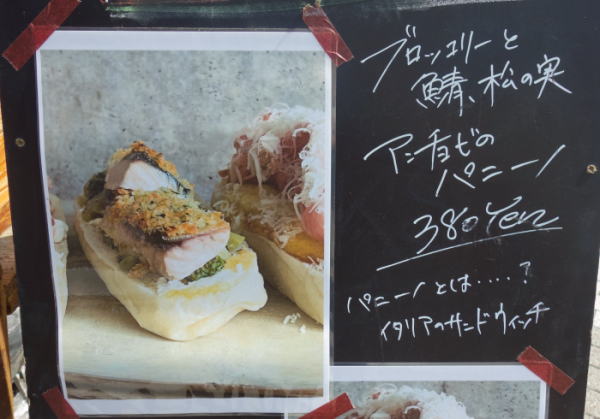 ブロッコリーと
鯖、松の実
アンチョビの
パニーノ
380Yen
パニーノとは‥‥‥?
イタリアのサンドウィッチ